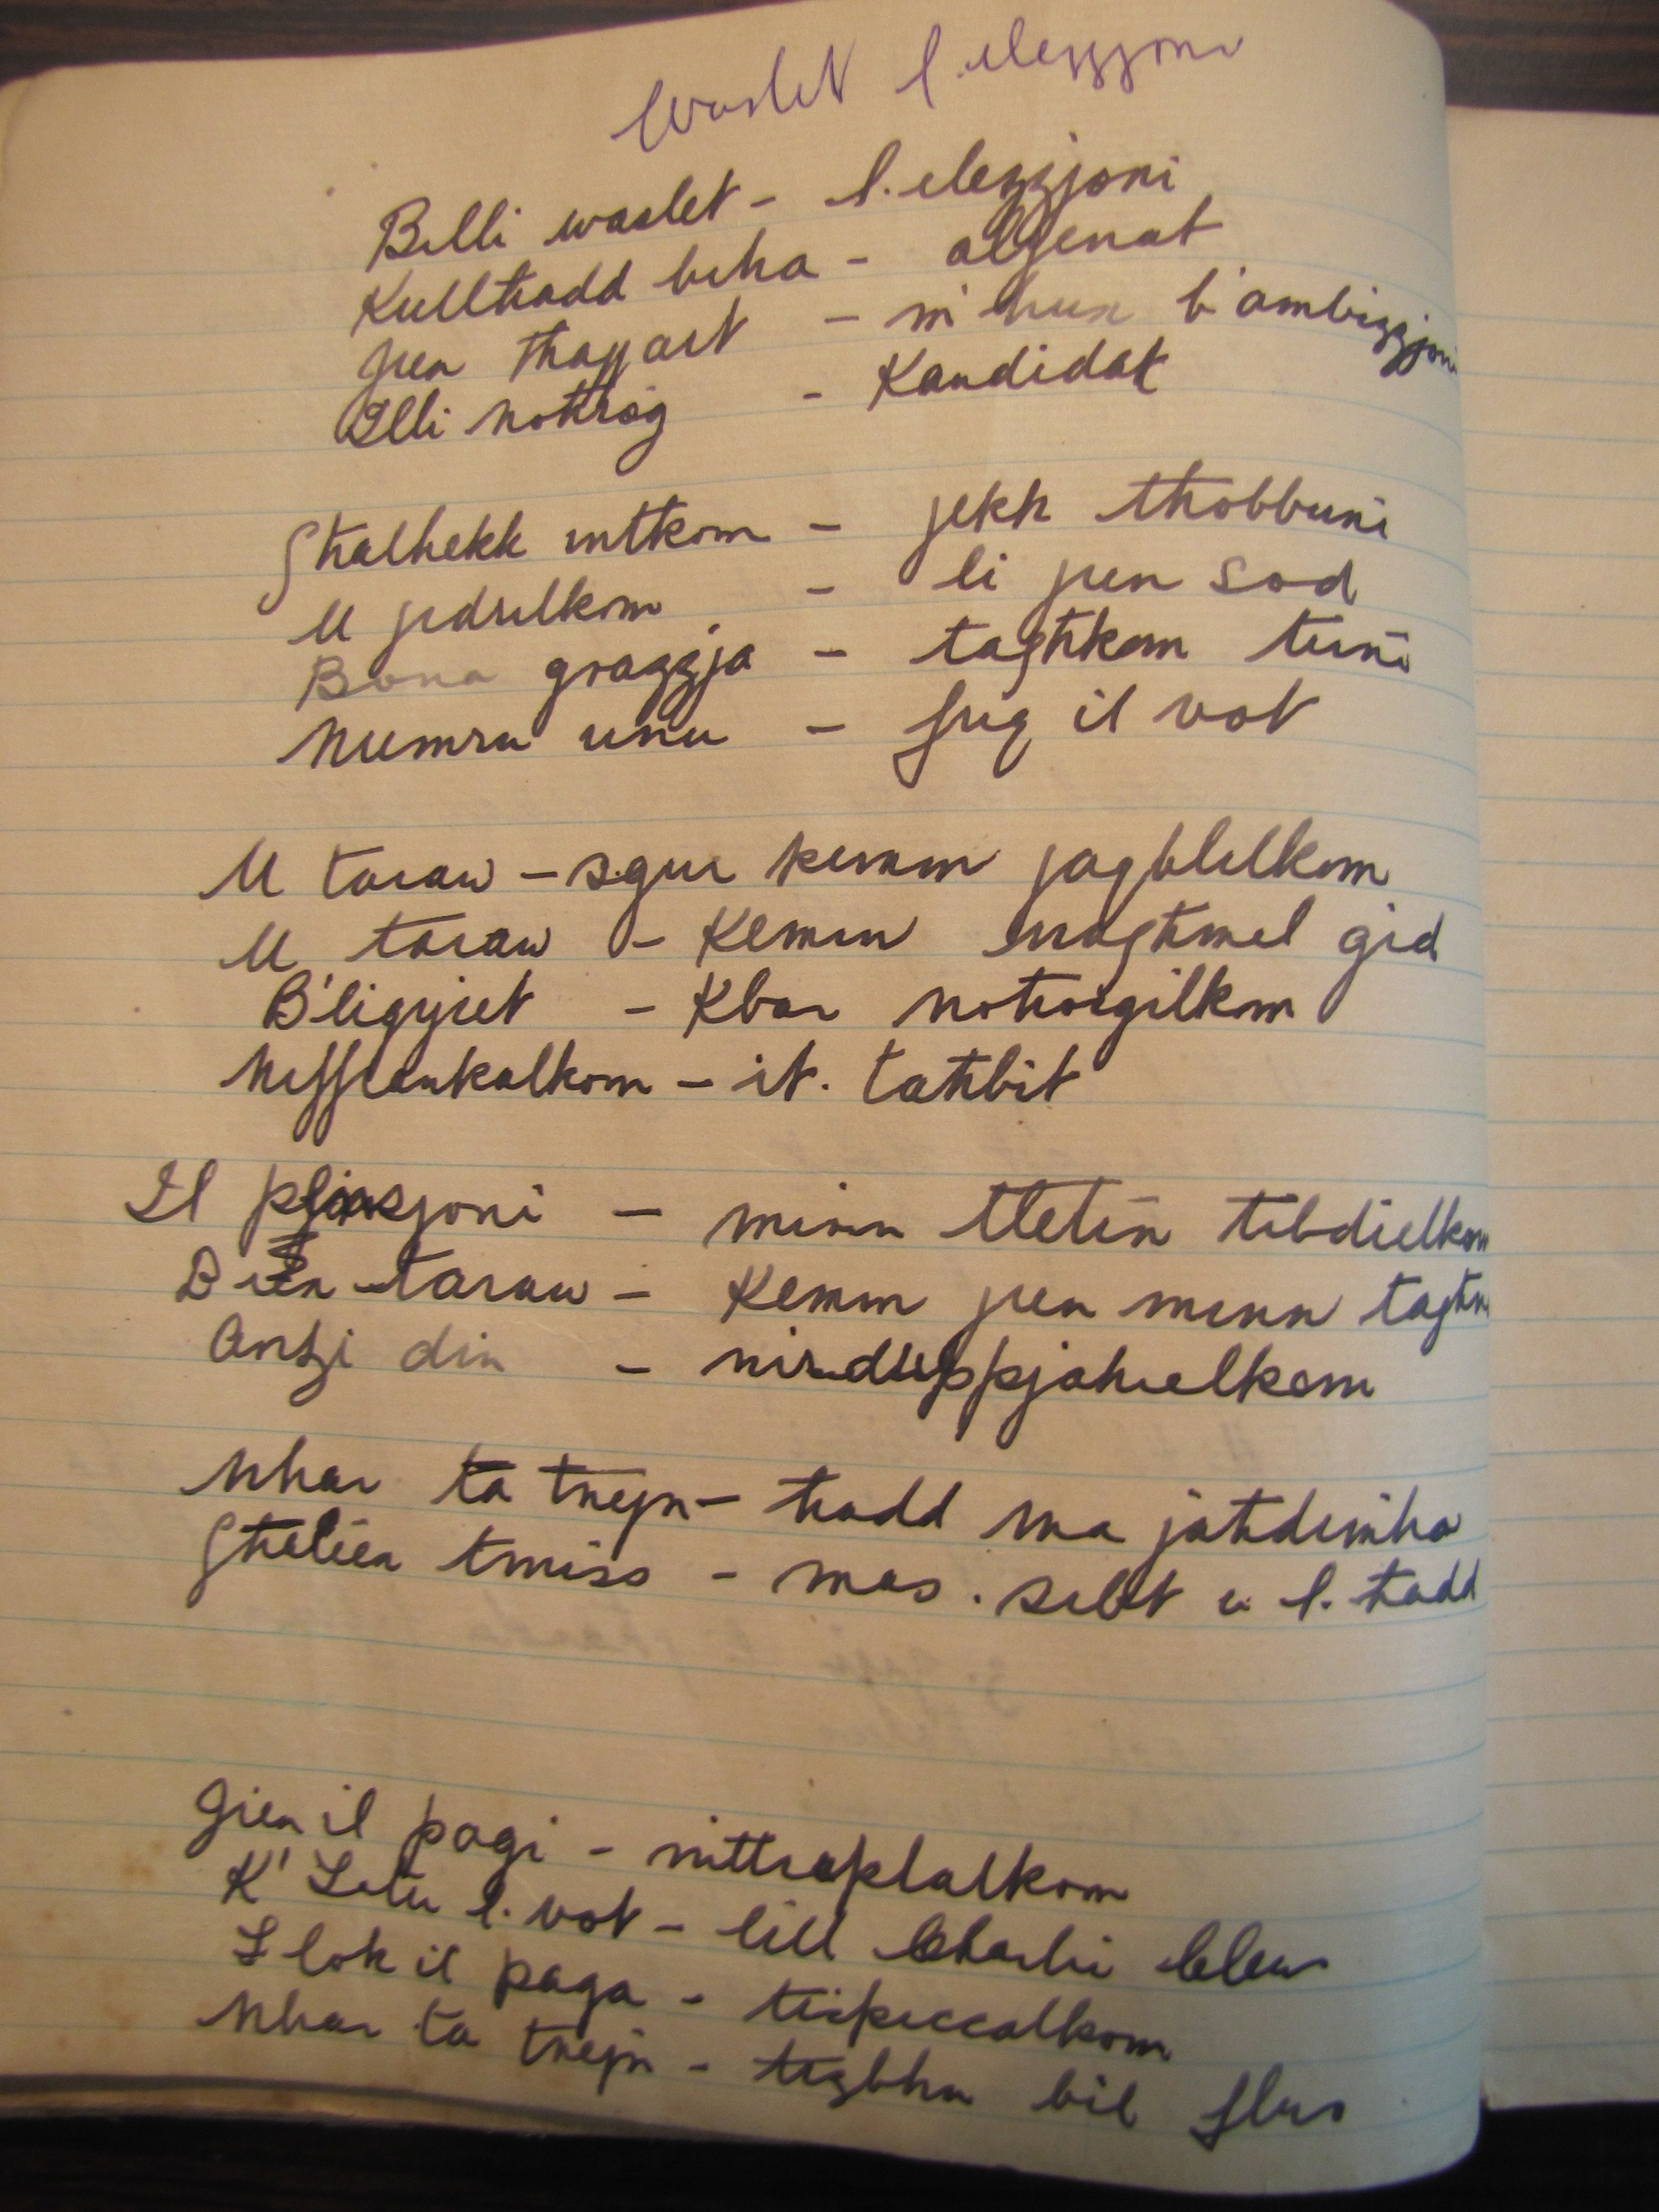 Waslet l.elezzjoni
Billi waslet - l.elezzjoni
Kullħadd biha - aljenat
jien Ħassart - m'hux b'ambizzjoni
Illi noħroġ - Kandidat
Għalhekk intkom - jekk tħobbuni
U jidrilkom - li jien sod
Bona grazzja - tagħkom tuni
Numru unu - fuq il vot
U taraw - sgur kemm jaqblilkom
U taraw - Kemm nagħmel ġid
B'liġijiet - Kbar noħorġilkom
Niffrankalkom - it. taħbit
Il pinsjoni - minn tletin tibdielkom
Biex taraw - Kemm jien minn tagħ
Anzi din - nirduppjahielkom
Nhar ta tnejn - ħadd ma jaħdimha
Għeliex tmiss - mas. sibt u l. ħadd
Ġie il pagi - nittraplalkom
K' Itu l.vot - lill Charlie Clews
I lok il paga - tispiccalkom
Nhar ta tnejn - tiżbħu bil flus